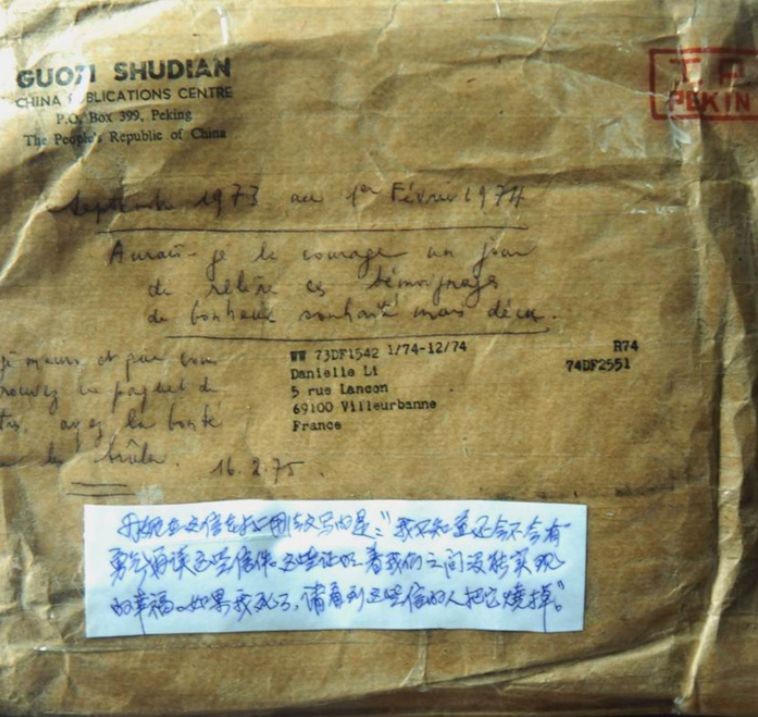 GUOZI SHUDIAN
CHINA PUBLICATIONS CENTRE
P.O. Box 399, Peking
The People's Republic of China
T. P.
PEKIN
Septembre 1973 au 1er Février 1974
Aurais-je le courage un jour
de relire ces témoignages
de bonheur souhaité mais déçu.
je meurs et que vous
trouvez ce paquet de
ayez la bonté
de les brûler.
16.2.75.
WW 73DF1542 1/74-12/74
R74
74DF2551
Danielle Li
5 rue Lancon
69100 Villeurbanne
France
信封上用法文写的是:“我不知道还会不会有
勇气再读这些信件。这些证明着我们之间没能实现
的幸福。如果我死了,请看到这些信的人把它烧掉。”